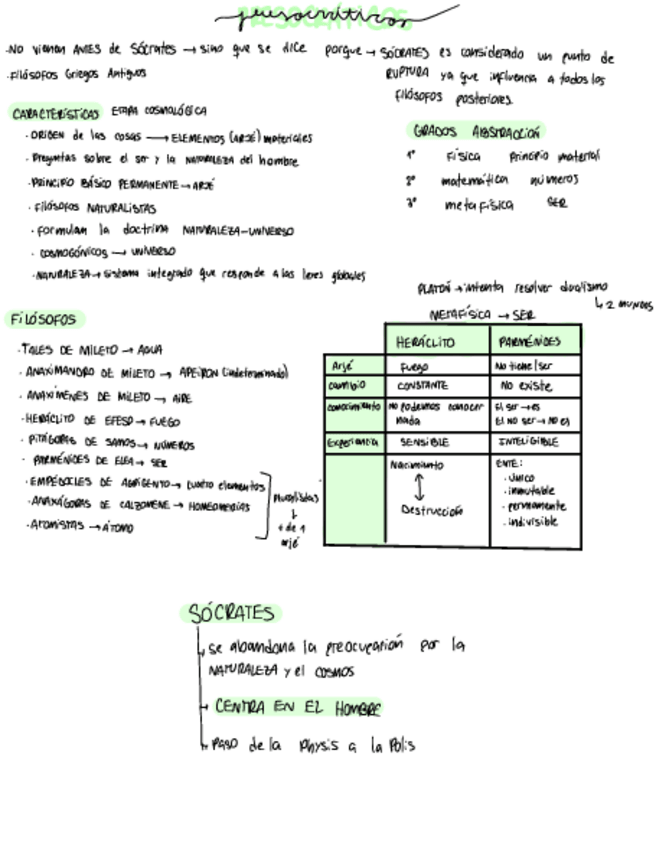 presocráticos
-NO vienen ANTES de Sócrates → sino que se dice porque → SÓCRATES es considerado un punto de
RUPTURA ya que influencia a todos los
filósofos posteriores.
-Filósofos Griegos Antiguos
CARACTERÍSTICAS ETAPA COSMOLÓGICA
· ORIGEN de las cosas → ELEMENTOS (ARJÉ) materiales
· Preguntas sobre el ser y la NATURALEZA del hombre
· PRINCIPIO BÁSICO PERMANENTE → ARJÉ
· Filósofos NATURALISTAS
· Formulan la doctrina NATURALEZA-UNIVERSO
· COSMOGÓNICOS → UNIVERSO
· NATURALEZA → sistema integrado que responde a las leyes globales
GRADOS ABSTRACCIÓN
1º Física Principio material
2º matemática números
3º metafísica SER
PLATÓN → intenta resolver dualismo
↳ 2 mundos
METAFÍSICA → SER
FILÓSOFOS
· TALES DE MILETO → AGUA
· ANAXIMANDRO DE MILETO → APEIRON (indeterminado)
· ANAXÍMENES DE MILETO → AIRE
· HERÁCLITO DE EFESO → FUEGO
· PITÁGORAS DE SAMOS → NÚMEROS
· PARMÉNIDES DE ELEA → SER
· EMPÉDOCLES DE AGRIGENTO → cuatro elementos
· ANAXÁGORAS DE CALZOMENE → HOMEOMERÍAS
· ATOMISTAS → ÁTOMO
Pluralistas
↓
+ de 1
arjé
HERÁCLITO PARMÉNIDES
Arjé Fuego No tiene/ser
cambio CONSTANTE No existe
conocimiento No podemos conocer nada El ser → es
El no ser → no es
Experiencia SENSIBLE INTELIGIBLE
Nacimiento
↕
Destrucción
ENTE:
· único
· inmutable
· permanente
· indivisible
SÓCRATES
→ se abandona la preocupación por la
NATURALEZA y el COSMOS
→ CENTRA EN EL HOMBRE
→ PASO de la Physis a la Polis